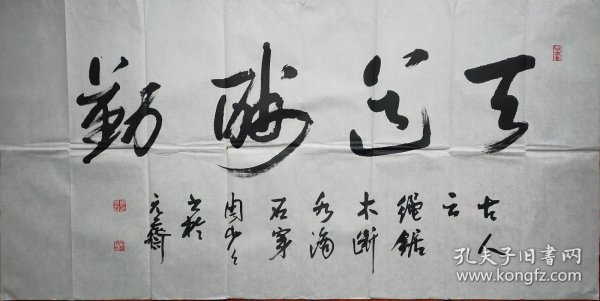 天道酬勤
古人
云
绳锯
木断
水滴
石穿
周少
书於
元斋
孔夫子旧书网
www.kongfz.com